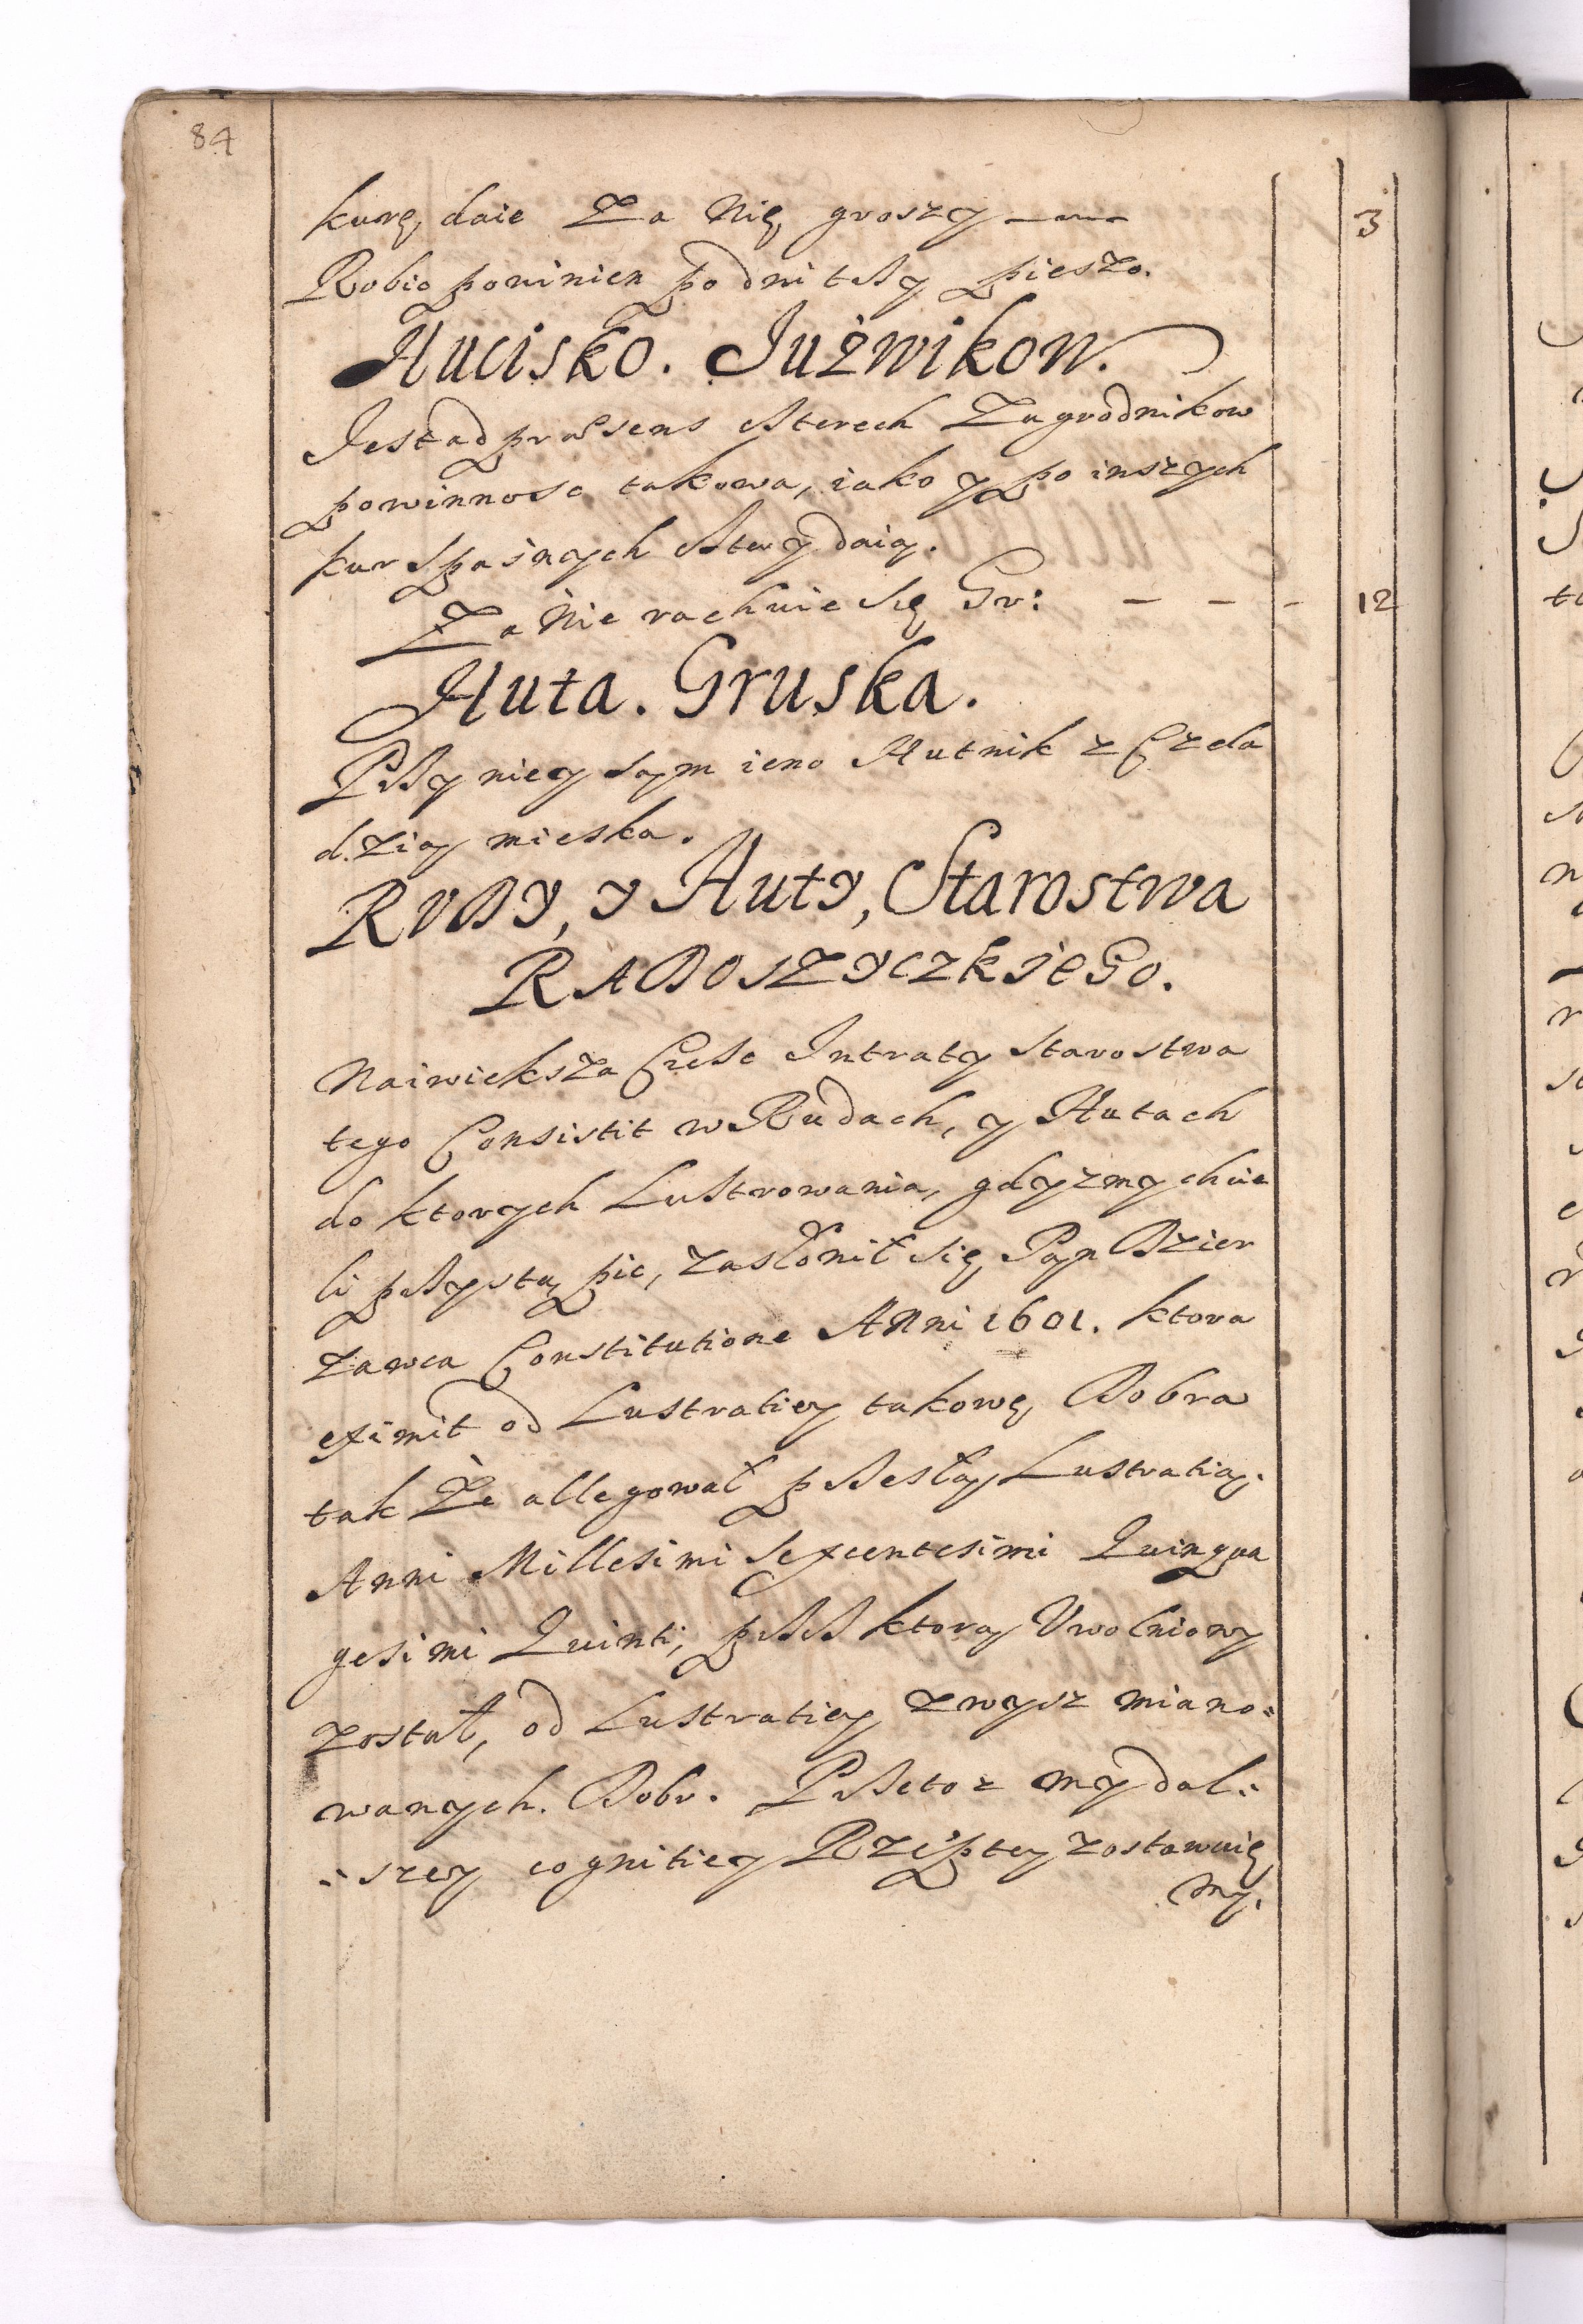 84
kurę, daie Za Nię, groszy —— 3
Robic powinien po dni trzy pieszo.
Hucisko. Jużwikow.
Jest ad præsens czterech Zagrodnikow
powinnosc takowa, iako y po inszych
kur spasnych cztery daią.
Za Nie rachuie się Gr: — — - 12
Huta. Gruska.
Przy niey sąm ieno Hutnik z Czela
dzią mieska.
RUDY, y Huty, Starostwa
RADOSZYCZKIEGO.
Naiwieksza Czesc Intraty starostwa
tego Consistit w Rudach, y Hutach
do ktorych Lustrowania, gdyzmy chcie
li przystąpic, zasłonił się Pan Dzier
zawca Constitutione Anni 1601. ktora
eximit od Lustratiey takowę, Dobra
tak Że allegował przeszłą Lustratią.
Anni Millesimi Sexcentesimi Quinqua
gesimi Quinti, przez ktorą Uwolniony
został, od Lustratiey zwysz miano=
wanych. Dobr. Przetoz my dal:
: szey cognitiey Rzeptey zostawuię
my.